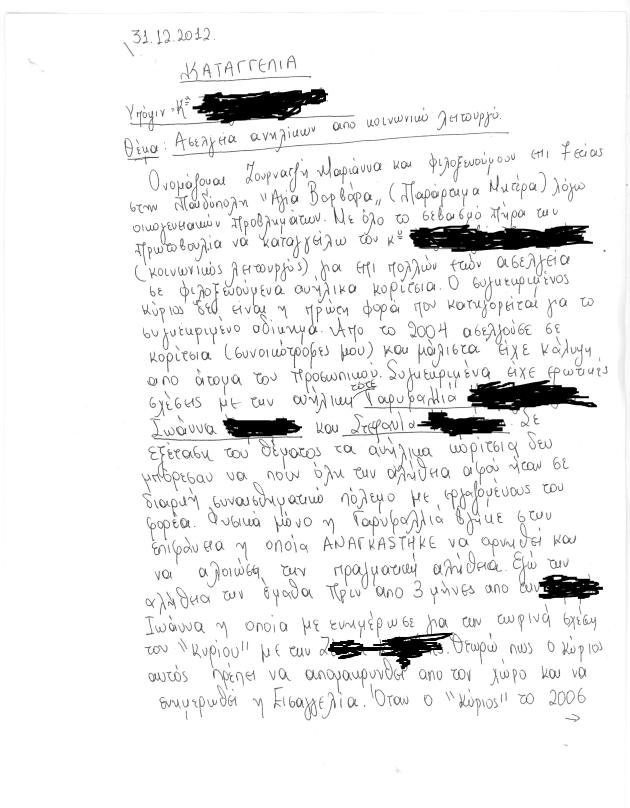 31.12.2012.
ΚΑΤΑΓΓΕΛΙΑ
Υπόψιν: Κα
Θέμα: Ασέλγεια ανηλίκων από κοινωνικό λειτουργό.
Ονομάζομαι Ζουρνατζή Μαριάννα και φιλοξενούμουν επι 7 ετίας
στην Παιδόπολη "Αγία Βαρβάρα" (Παράρτημα Μητέρα) λόγω
οικογενειακών προβλημάτων. Με όλο το σεβασμό πήρα την
πρωτοβουλία να καταγγείλω τον κο
(κοινωνικός λειτουργός) για επι πολλών ετών ασέλγεια
σε φιλοξενούμενα ανήλικα κορίτσια. Ο συγκεκριμένος
κύριος δεν είναι η πρώτη φορά που κατηγορείται για το
συγκεκριμενο αδίκημα. Απο το 2004 ασελγούσε σε
κορίτσια (συνοικότροφες μου) και μάλιστα είχε κάλυψη
απο άτομα του προσωπικού. Συγκεκριμένα είχε ερωτικές
σχέσεις με την ανήλικη τότε Γαρυφαλλιά
Ιωάννα και Στεφανία Σε
εξέταση του θέματος τα ανήλικα κορίτσια δεν
μπόρεσαν να πουν όλη την αλήθεια αφού ήταν σε
διαρκή συναισθηματικό πόλεμο με εργαζομένους του
φορέα. Φυσικά μόνο η Γαρυφαλλιά βγήκε στην
επιφάνεια η οποία ΑΝΑΓΚΑSTHKE να αρνηθεί και
να αλοιώσει την πραγματική αλήθεια. Εγώ την
αλήθεια την έμαθα πριν απο 3 μήνες απο την
Ιωάννα η οποία με ενημέρωσε για την τωρινή σχέση
του "κυρίου" με την Θεωρώ πως ο κύριος
αυτός πρέπει να απομακρυνθεί απο τον χώρο και να
ενημερωθεί η Εισαγγελία. Όταν ο "κύριος" το 2006
→